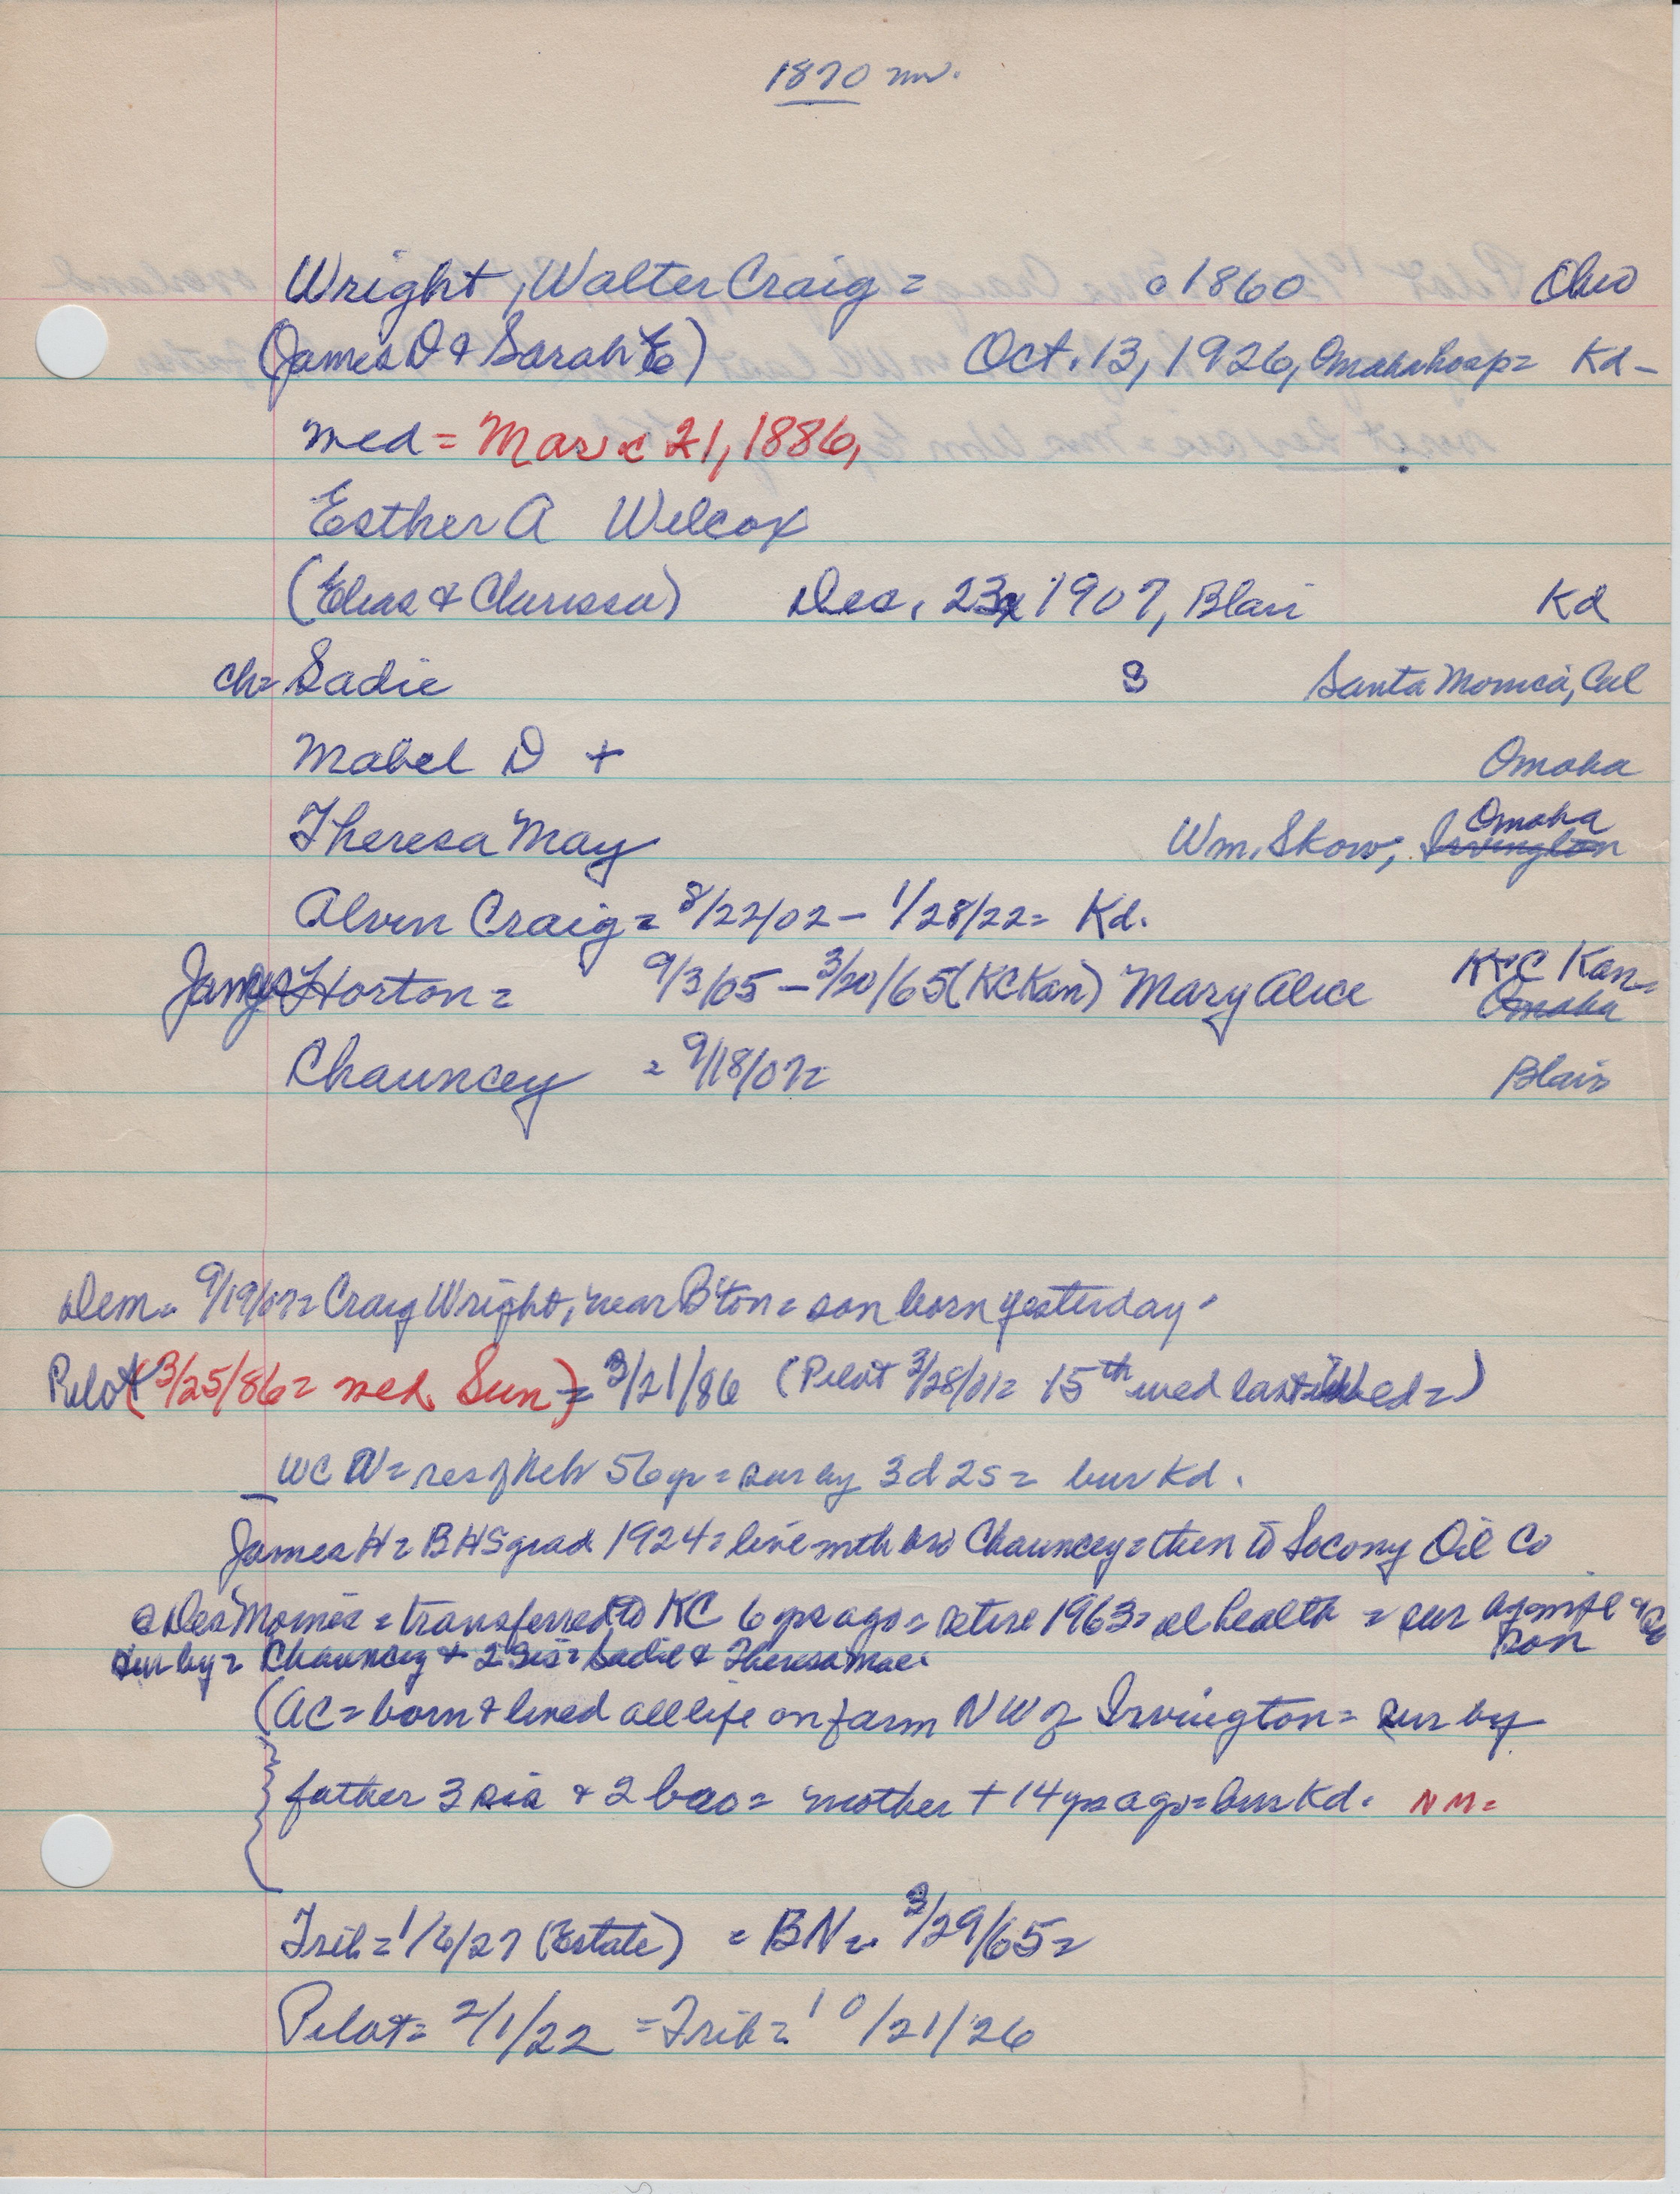 1870 nw.
Wright, Walter Craig = c 1860 Ohio
(James D & Sarah E) Oct. 13, 1926, Omaha hosp = Kd -
med = Marc 21, 1886,
Esther A Wilcox
(Elias & Clarissa) Dec. 23, 1907, Blair Kd
ch = Sadie S Santa Monica, Cal
Mabel D + Omaha
Theresa May Wm. Skow, Irvington Omaha
Alvin Craig = 8/22/02 - 1/28/22 = Kd.
James Horton = 9/3/05 - 3/20/65 (KC Kan) Mary Alice KC Kan = Omaha
Chauncey = 9/18/07 = Blair
Dem = 9/19/07 = Craig Wright, near B'ton = son born yesterday.
Pilot (3/25/86 = med. Sun) = 3/21/86 (Pilot 3/28/01 = 15th wed last Wed =)
WCW = res of Neb 56 yr = sur by 3d 2s = bur Kd.
James H = BHS grad 1924 = live with bro Chauncey = then to Socony Oil Co
@ Des Moines = transferred to KC 6 yrs ago = retire 1963 = ill health = sur by wife & son
sur by = Chauncey & 2 sis = Sadie & Theresa Mae.
(AC = born & lived all life on farm NW of Irvington = sur by
father 3 sis & 2 bro = mother + 14 yrs ago = bur Kd. NM =
Trib = 1/6/27 (Estate) = BN = 3/29/65 =
Pilot = 2/1/22 = Trib = 10/21/26